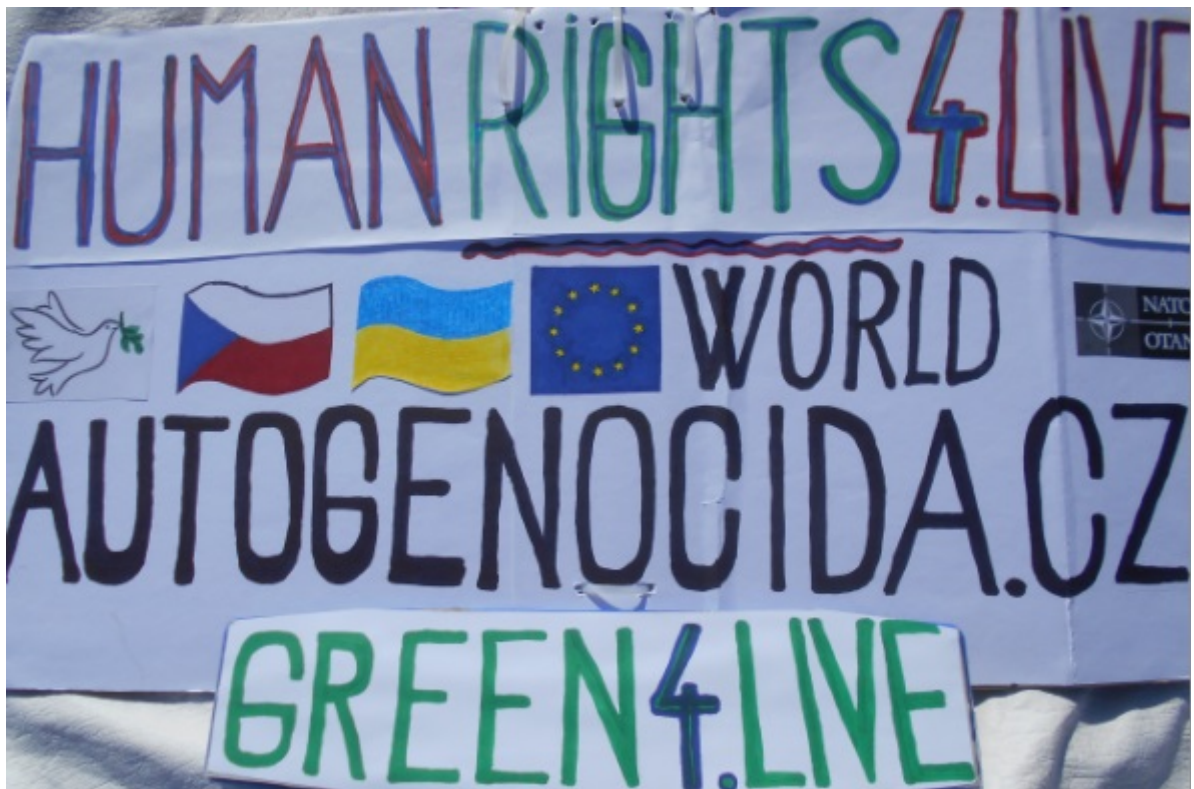 HUMAN RIGHTS 4.LIVE
WORLD
NATO
OTAN
AUTOGENOCIDA.CZ
GREEN4.LIVE